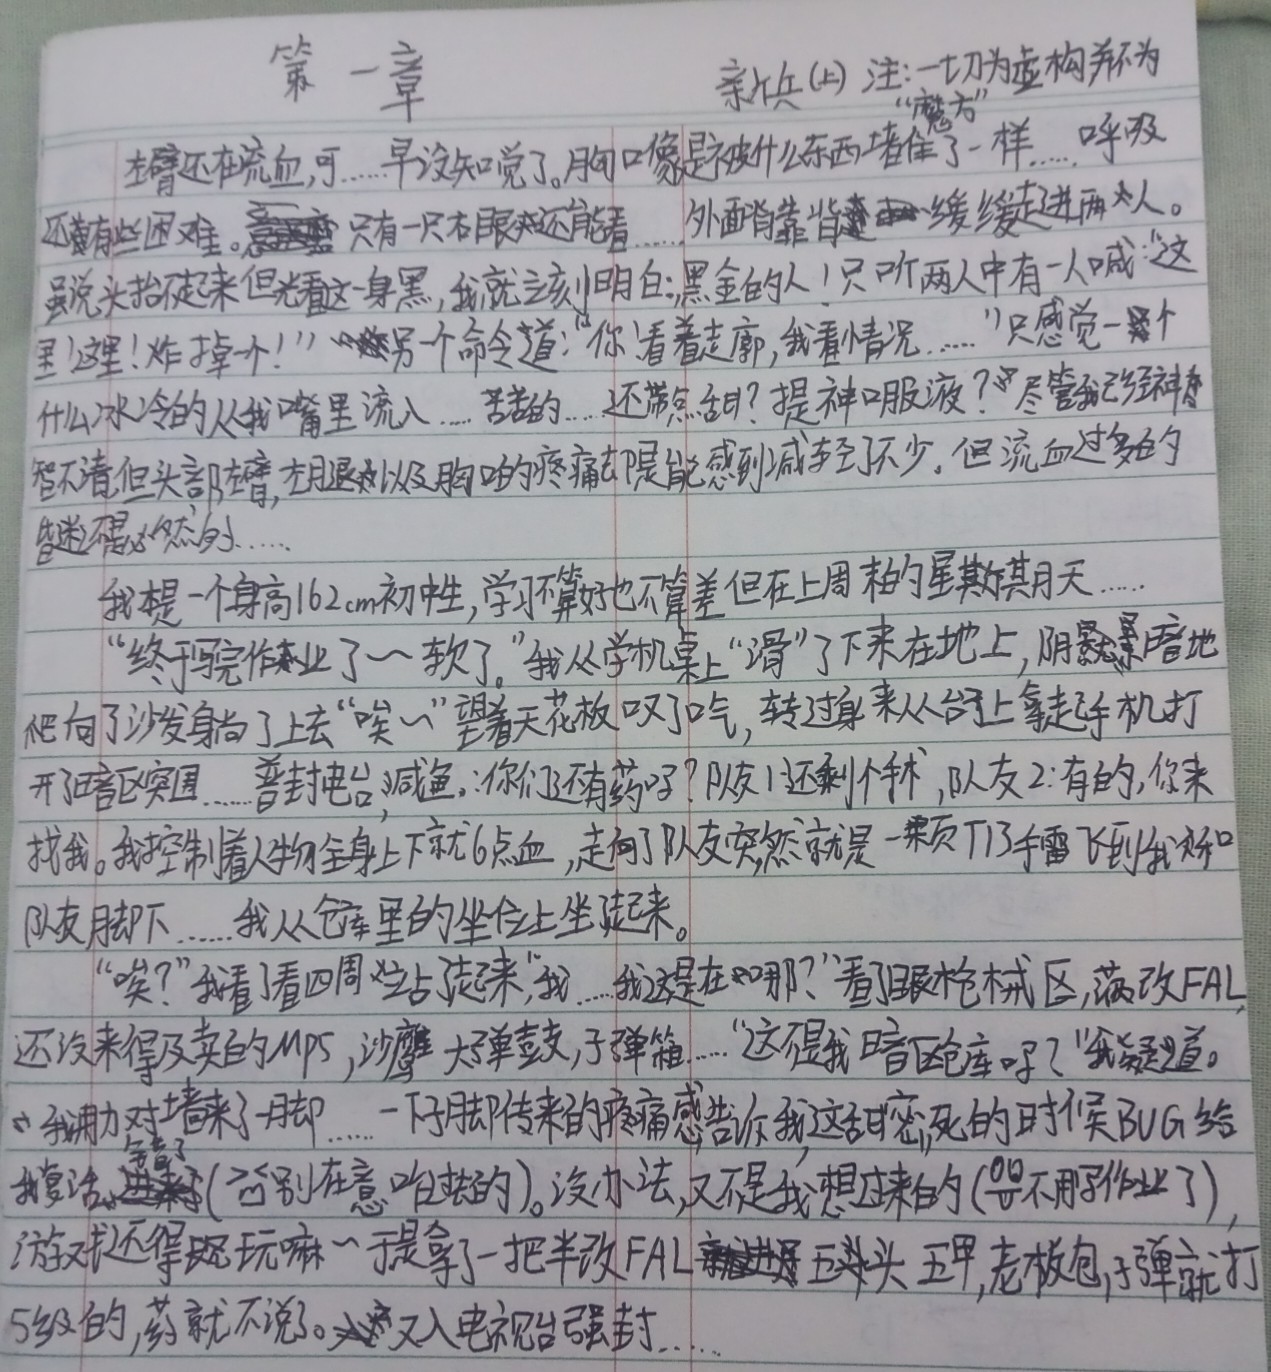 第一章
新兵(上) 注:一切为虚构并不为
“魔方”
左臂还在流血,可……早没知觉了。胸口像是被什么东西堵住了一样……呼吸
还有些困难。只有一只右眼还能看……外面背靠背缓缓走进两人。
虽说头抬不起来但光看这一身黑,我就立刻明白:黑金的人!只听两人中有一人喊:“这
里!这里!炸掉一个!”另一个命令道:“你看着走廊,我看情况……”只感觉一个
什么冰冷的从我嘴里流入……苦苦的……还带点甜?提神口服液?尽管我已经神
智不清但头部,左臂,左腿以及胸口的疼痛都是能感到减轻了不少。但流血过多的
昏迷还是必然的……
我本是一个身高162cm初中生,学习不算好也不算差但在上周末的星期天……
“终于写完作业了~软了。”我从学机桌上“滑”了下来在地上,阴暗地
爬向了沙发身尚了上去“唉~”望着天花板叹了口气,转过身来从台子上拿起手机打
开了暗区突围……普封电台,减鱼:你们还有药吗?队友1:还剩个手术,队友2:有的,你来
找我。我控制着人物全身上下就6点血,走向了队友突然就是一颗T13手雷飞到我和
队友脚下……我从仓库里的坐位上坐了起来。
“唉?”我看了看四周站了起来,“我……我这是在哪?”看了眼枪械区,满改FAL,
还没来得及卖的MP5,沙鹰大弹鼓,子弹箱……“这不是我暗区仓库吗?”我疑道。
我用力对墙来了一脚……一下子脚传来的疼痛感告诉我,这甜蜜,死的时候BUG给
我复活穿了(凸别在意咋挂的)。没办法,又不是我想过来的(不用写作业了),
游戏还得玩嘛~于是拿了一把半改FAL五头五甲,老板包,子弹就打
5级的,药就不说了。又入电视台强封……